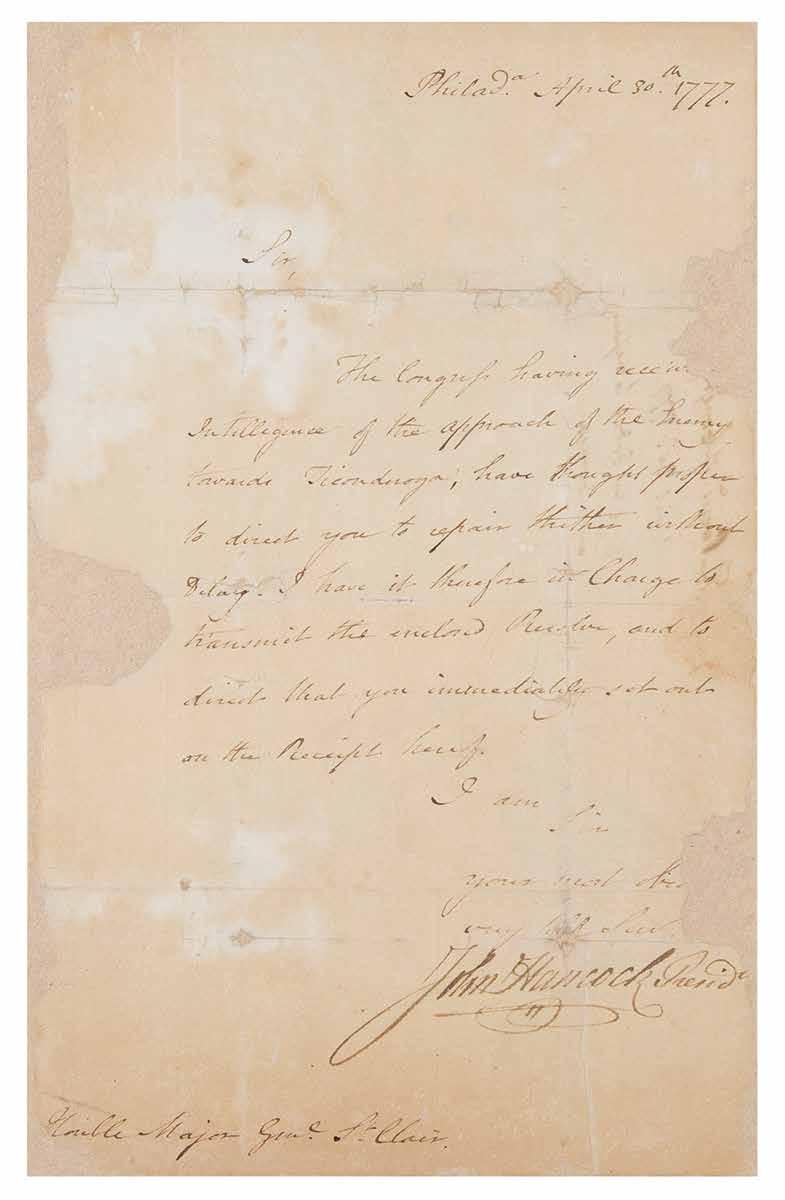 Philad.ª April 30.th 1777.
Sir,
The Congress having
Intelligence of the approach of the Enemy
towards Ticonderoga, have thought proper
to direct you to repair thither without
Delay. I have it therefore in Charge to
transmit the enclosed Resolve, and to
direct that you immediately set out
on the Receipt hereof.
I am
Sir
your most
very Serv.
John Hancock Presidt
Honble Major Genl. St. Clair.